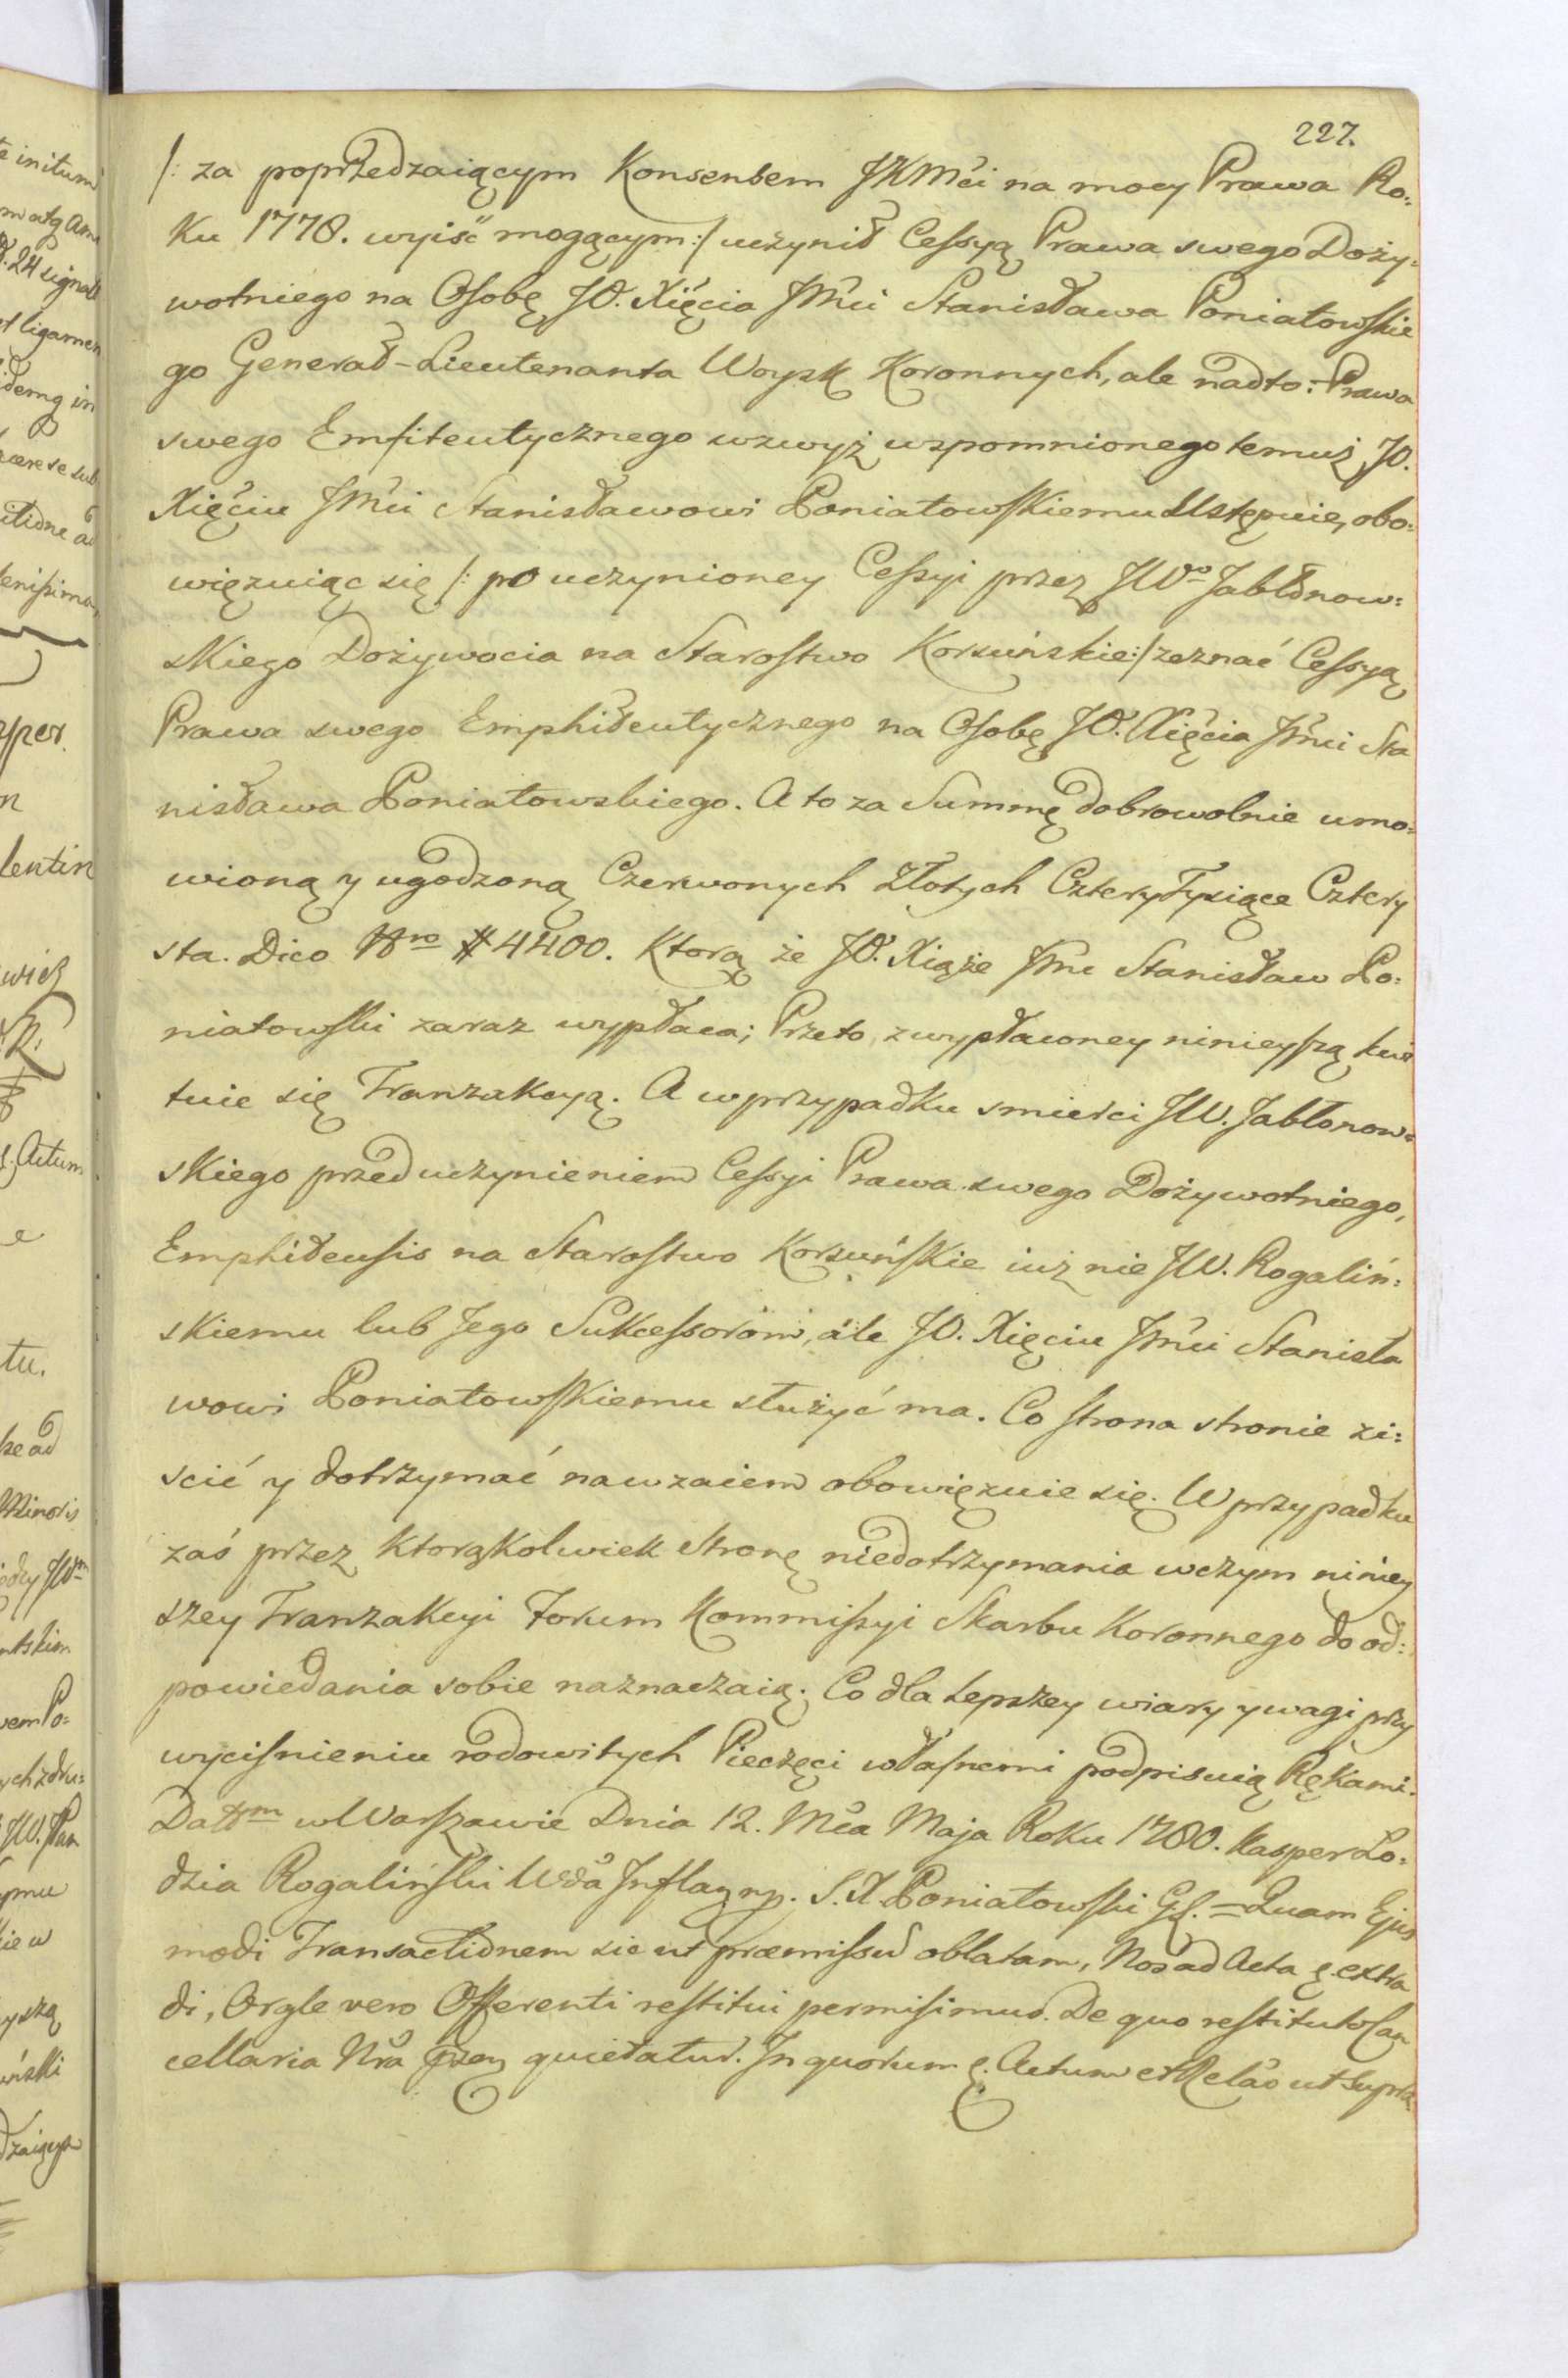 227.
/: za poprzedzaiącym Konsensem JKMći na mocy Prawa Ro:
ku 1778. wyiść mogącym :/ uczynił Cessyą Prawa swego Doży:
wotniego na Osobę JO. Xięcia Jmći Stanisława Poniatowskie
go Generał-Lieutenanta Woysk Koronnych, ale nadto: Prawa
swego Emfiteutycznego wzwyż wspomnionego temuż JO.
Xięciu Jmći Stanisławowi Poniatowskiemu Ustępuie, obo:
więzuiąc się /: po uczynioney Cessyi przez JWo Jabłonow:
skiego Dożywocia na Starostwo Korsuńskie :/ zeznać Cessyą
Prawa swego Emphiteutycznego na Osobę JO. Xięcia Jmći Sta
nisława Poniatowskiego. A to za Summę dobrowolnie umo:
wioną y ugodzoną Czerwonych Złotych Cztery Tysiące Cztery
sta. Dico Nro # 4400. Ktorą że JO. Xiąże Jmć Stanisław Po:
niatowski zaraz wypłaca; Przeto z wypłaconey ninieyszą kwi
tuie się Tranzakcyą. A w przypadku smierci JW. Jabłonow:
skiego przed uczynieniem Cessyi Prawa swego Dożywotniego,
Emphiteusis na Starostwo Korsuńskie iuż nie JW. Rogaliń:
skiemu lub Jego Sukcessorom, ale JO. Xięciu Jmći Stanisła
wowi Poniatowskiemu służyć ma. Co strona stronie zi:
scić y dotrzymać nawzaiem obowięzuie się. W przypadku
zaś przez ktorąkolwiek stronę niedotrzymania w czym niniey
szey Tranzakcyi Forum Kommissyi Skarbu Koronnego do od:
powiedania sobie naznaczaią. Co dla lepszey wiary y wagi przy
wycisnieniu rodowitych Pieczęci własnemi podpisuią Rękami.
Dattm w Warszawie Dnia 12. Mca Maja Roku 1780. Kasper Ło:
dzia Rogaliński Wda Inflag mp. S. X Poniatowski GL. = Quam Ejus
modi Transactionem sic ut præmissū oblatam, Nos ad Acta extra
di, Orgle vero Offerenti restitui permisimus. De quo restituto Can
cellaria Nra quietatur. In quorum Actum et Relao ut supra